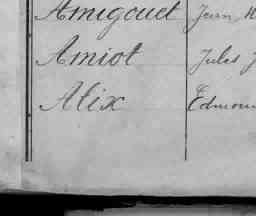 Amigouet Jean
Amiot Jules J
Alix Edmon